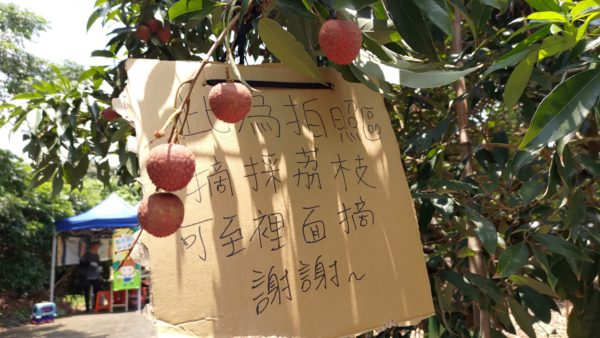 此為拍照區
摘採荔枝
可至裡面摘
謝謝~